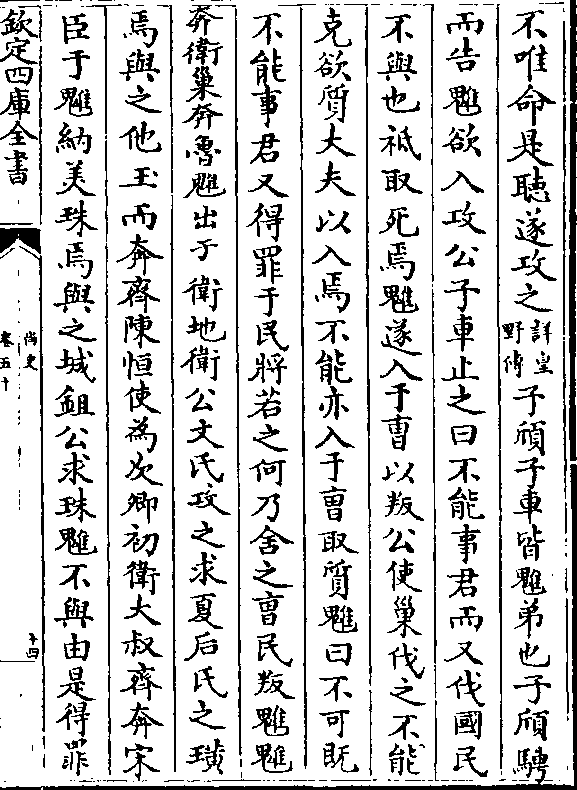 不唯命是聽遂攻之詳皇野傳子頎子車皆魋弟也子頎騁
而告魋欲入攻公子車止之曰不能事君而又伐國民
不與也祗取死焉魋遂入于曺以叛公使巢伐之不能
克欲質大夫以入焉不能亦入于曺取質魋曰不可既
不能事君又得罪于民將若之何乃舍之曺民叛魋魋
奔衛巢奔魯魋出于衛地衛公文氏攻之求夏后氏之璜
焉與之他玉而奔齊陳恒使為次卿初衛大叔齊奔宋
臣于魋納美珠焉與之城鉏公求珠魋不與由是得罪
欽定四庫全書
尚史
卷五十
十四